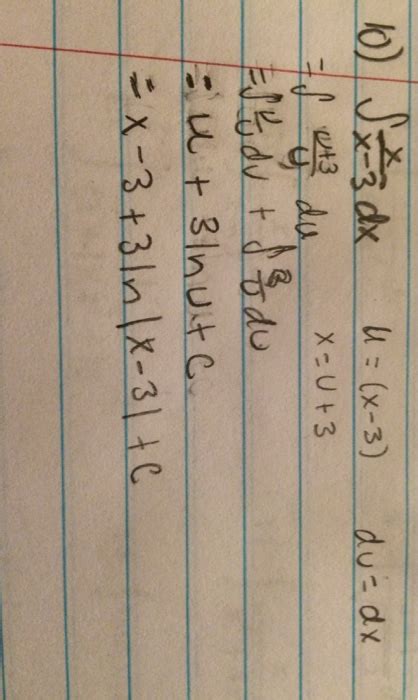 10) ∫ x/x-3 dx   u = (x-3)   du = dx
= ∫ u+3/u du   x = u+3
= ∫ u/u du + ∫ 3/u du
= u + 3 ln u + C
= x-3+3 ln |x-3| + C